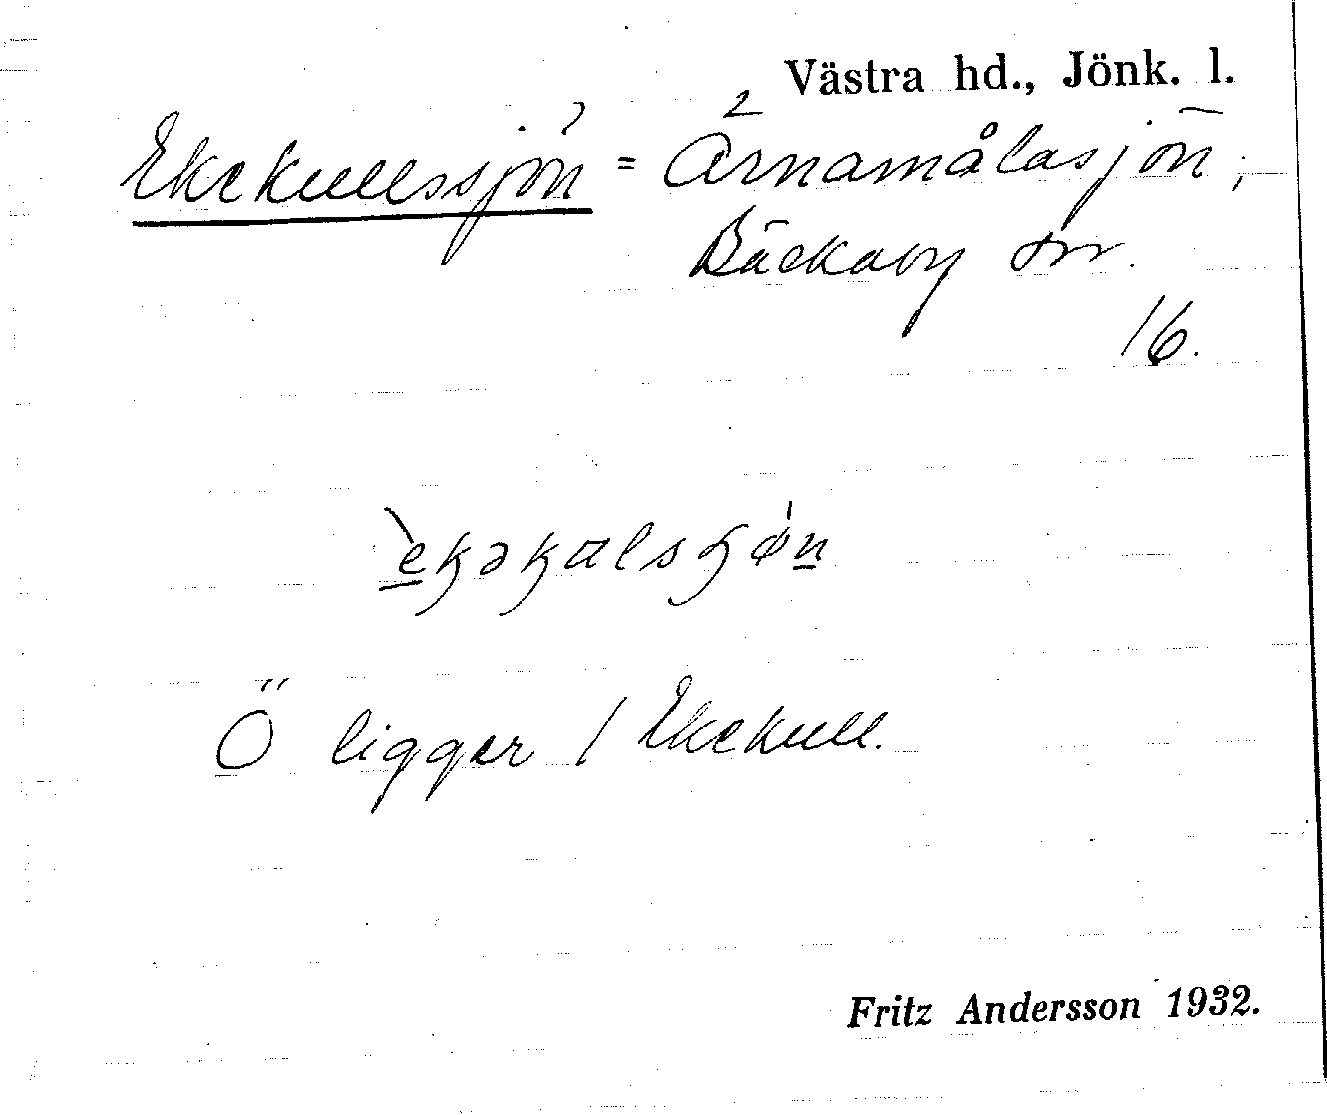 Västra hd., Jönk. l.
Ekekullssjön = Ärnamålasjön,
Bäckaby sn.
16.
Ö ligger / Ekekull.
Fritz Andersson 1932.